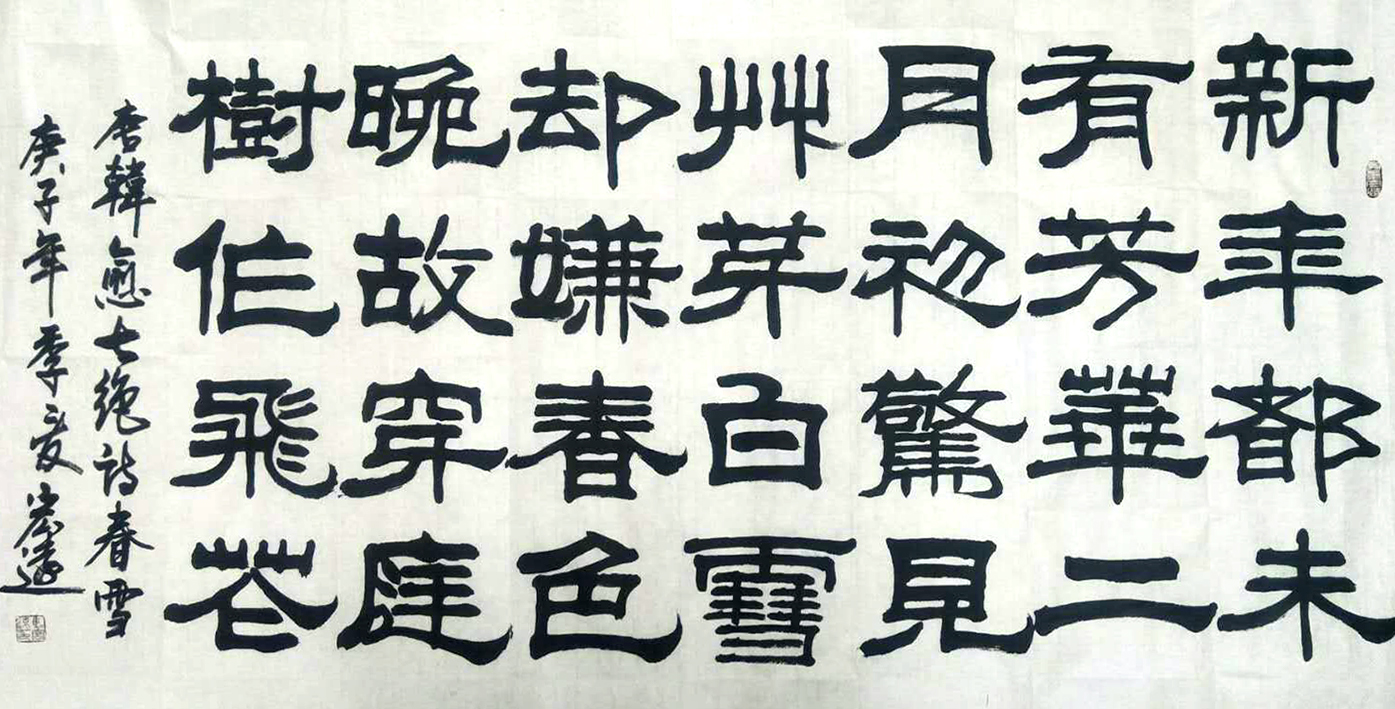 新年都未
有芳華二
月初驚見
艸芽白雪
却嫌春色
晚故穿庭
樹作飛花
唐韓愈七绝诗春雪
庚子年季夏